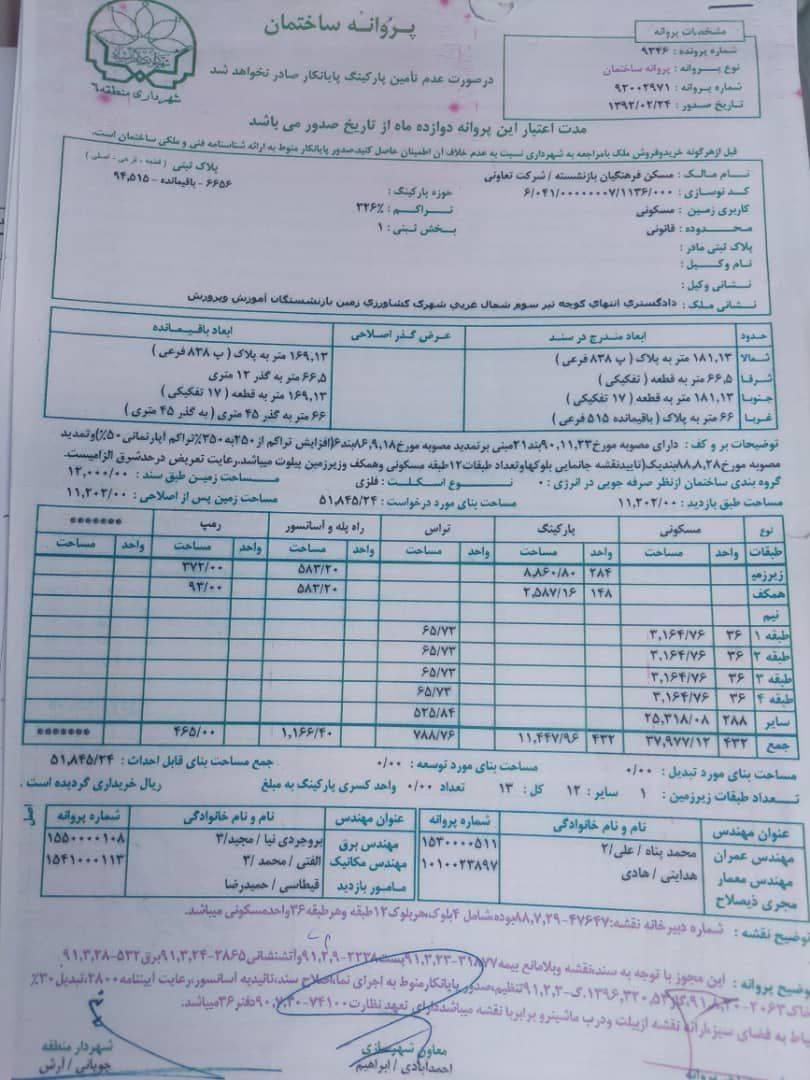 پروانه ساختمان
درصورت عدم تأمین پارکینگ پایانکار صادر نخواهد شد
شهرداری منطقه ٦
مشخصات پروانه
شماره پرونده : ۹۳۴۶
نوع پروانه : پروانه ساختمان
شماره پروانه : ۹۲۰۰۲۹۷۱
تاریخ صدور : ۱۳۹۲/۰۲/۲۴
مدت اعتبار این پروانه دوازده ماه از تاریخ صدور می باشد
قبل ازهرگونه خریدوفروش ملک بامراجعه به شهرداری نسبت به عدم خلاف آن اطمینان حاصل کنید.صدور پایانکار منوط به ارائه شناسنامه فنی و ملکی ساختمان است.
نام مالک : مسکن فرهنگیان بازنشسته / شرکت تعاونی
پلاک ثبتی ( قطعه ، فرعی ، اصلی )
کد نوسازی : ۶/۰۴۱/۰۰۰۰۰۰۰۷/۱۱۳۶/۰۰۰
۶۶۵۶ - باقیمانده - ۹۴,۵۱۵
کاربری زمین : مسکونی
حوزه پارکینگ :
محدوده : قانونی
تراکم : ۳۲۶٪
پلاک ثبتی مادر :
بخش ثبتی : ۱
نام وکیل :
نشانی وکیل :
نشانی ملک : دادگستری انتهای کوچه تیر سوم شمال غربی شهرک کشاورزی زمین بازنشستگان آموزش وپرورش
حدود ابعاد مندرج در سند عرض گذر اصلاحی ابعاد باقیمانده
شمالا ۱۸۱,۱۳ متر به پلاک ( پ ۸۳۸ فرعی ) ۱۶۹,۱۳ متر به پلاک ( پ ۸۳۸ فرعی )
شرقا ۶۶,۵ متر به قطعه ( تفکیکی ) ۶۶,۵ متر به گذر ۱۲ متری
جنوبا ۱۸۱,۱۳ متر به قطعه ( ۱۷ تفکیکی ) ۱۶۹,۱۳ متر به قطعه ( ۱۷ تفکیکی )
غربا ۶۶ متر به پلاک ( باقیمانده ۵۱۵ فرعی ) ۶۶ متر به گذر ۴۵ متری ( به گذر ۴۵ متری )
توضیحات بر و کف : دارای مصوبه مورخ ۹۰,۱۱,۲۳بند۲۱مبنی برتمدید مصوبه مورخ۸۶,۹,۱۸بند۶(افزایش تراکم از۲۵۰به۳۵۰٪تراکم آپارتمانی۵۰٪)وتمدید
مصوبه مورخ۸۸,۸,۲۸بندیک(تاییدنقشه جانمایی بلوکهاوتعداد طبقات۱۲طبقه مسکونی وهمکف وزیرزمین پیلوت میباشد.رعایت تعریض درحدشرق الزامیست.
گروه بندی ساختمان ازنظر صرفه جویی در انرژی : ۰ نوع اسکلت : فلزی مساحت زمین طبق سند : ۱۲,۰۰۰/۰۰
مساحت طبق بازدید : ۱۱,۲۰۲/۰۰ مساحت بنای مورد درخواست : ۵۱,۸۴۵/۲۴ مساحت زمین پس از اصلاحی : ۱۱,۲۰۲/۰۰
نوع مسکونی پارکینگ تراس راه پله و آسانسور رمپ *******
طبقات واحد مساحت واحد مساحت واحد مساحت واحد مساحت واحد مساحت واحد مساحت
زیرزمین ۲۸۴ ۸,۸۶۰/۸۰ ۵۸۳/۲۰ ۳۷۲/۰۰
همکف ۱۴۸ ۲,۵۸۷/۱۶ ۵۸۳/۲۰ ۹۳/۰۰
نیم
طبقه ۱ ۳۶ ۳,۱۶۴/۷۶ ۶۵/۷۳
طبقه ۲ ۳۶ ۳,۱۶۴/۷۶ ۶۵/۷۳
طبقه ۳ ۳۶ ۳,۱۶۴/۷۶ ۶۵/۷۳
طبقه ۴ ۳۶ ۳,۱۶۴/۷۶ ۶۵/۷۳
سایر ۲۸۸ ۲۵,۳۱۸/۰۸ ۵۲۵/۸۴
جمع ۴۳۲ ۳۷,۹۷۷/۱۲ ۴۳۲ ۱۱,۴۴۷/۹۶ ۷۸۸/۷۶ ۱,۱۶۶/۴۰ ۴۶۵/۰۰ *******
مساحت بنای مورد تبدیل : ۰/۰۰ مساحت بنای مورد توسعه : ۰/۰۰ جمع مساحت بنای قابل احداث : ۵۱,۸۴۵/۲۴
تعداد طبقات زیرزمین : ۱ سایر : ۱۲ کل : ۱۳ تعداد ۰/۰۰ واحد کسری پارکینگ به مبلغ ریال خریداری گردیده است .
اصل
عنوان مهندس نام و نام خانوادگی شماره پروانه عنوان مهندس نام و نام خانوادگی شماره پروانه
مهندس عمران محمد پناه / علی/۲ ۱۵۳۰۰۰۰۵۱۱ مهندس برق بروجردی نیا / مجید/۳ ۱۵۵۰۰۰۰۱۰۸
مهندس معمار هدایتی / هادی ۱۰۱۰۰۲۳۸۹۷ مهندس مکانیک الفتی / محمد /۳ ۱۵۴۱۰۰۰۱۱۳
مجری ذیصلاح مامور بازدید قیطاسی / حمیدرضا
توضیح نقشه : شماره دبیرخانه نقشه:۴۷۶۴۷-۸۸,۷,۲۹بوده شامل ۴بلوک،هربلوک۱۲طبقه وهرطبقه۳۶واحدمسکونی میباشد.
توضیح پروانه : این مجوز با توجه به سندنقشه وبلامانع بیمه۳۱۸۷۷-۹۱,۳,۲۳پست۲۲۳۸-۹۱,۲,۹وآتشنشانی۲۸۶۵-۹۱,۳,۲۴برق۵۳۲-۹۱,۳,۲۸
خاک۲۰۶۳-۹۱,۸,۲۰ تنظیم،صدور پایانکارمنوط به اجرای نما،اصلاح سند،تائیدیه آسانسور،رعایت آییننامه۲۸۰۰،تبدیل۳۰٪
حیاط به فضای سبز،ارائه نقشه ازبیلت ودرب ماشینرو برابربا نقشه میباشددارای تعهد نظارت۷۴۱۰۰-۹۰,۷,۳۰دفتر۳۶میباشد.
معاون شهرسازی
احمدآبادی / ابراهیم
شهردار منطقه
چوپانی / آرش